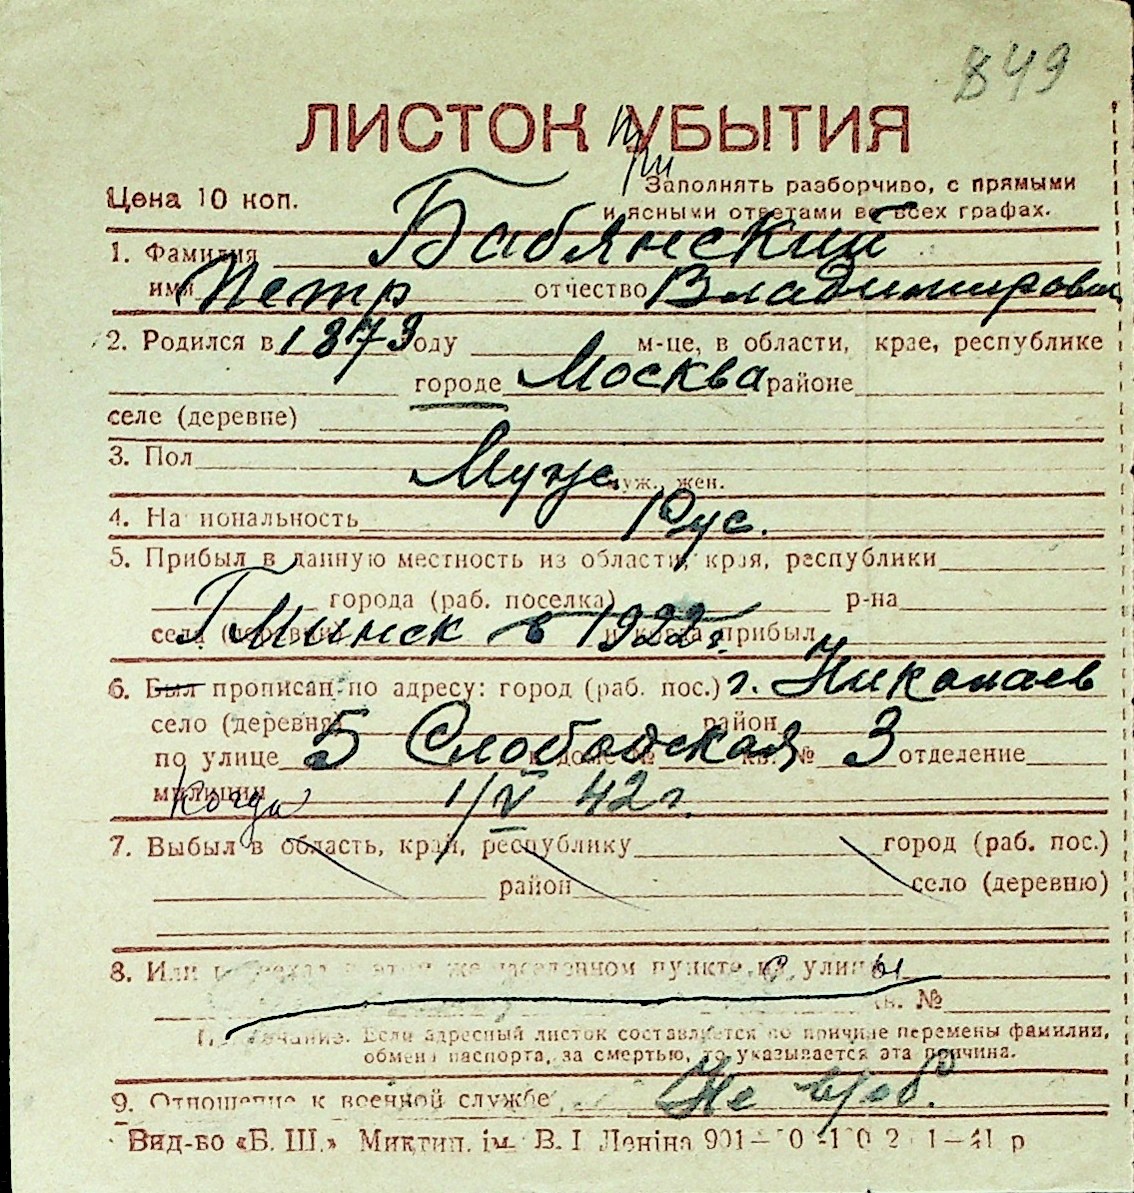 849
ЛИСТОК УБЫТИЯ
При
Цена 10 коп.
Заполнять разборчиво, с прямыми
и ясными ответами во всех графах.
1. Фамилия Бабянский
имя Петр отчество Владимирович
2. Родился в 1873 году м-це, в области, крае, республике
городе Москва районе
селе (деревне)
3. Пол Муж. муж., жен.
4. Национальность Рус.
5. Прибыл в данную местность из области, края, республики
города (раб. поселка) р-на
села (деревни) Г Минск в 1922 г. и когда прибыл
6. Был прописан по адресу: город (раб. пос.) г. Николаев
село (деревня) район
по улице 5 Слободская в доме № кв. № 3 отделение
милиции Когда 1/V 42 г.
7. Выбыл в область, край, республику город (раб. пос.)
район село (деревню)
8. Или переехал в этом же населенном пункте с улицы
кв. №
Примечание. Если адресный листок составляется по причине перемены фамилии,
обмена паспорта, за смертью, то указывается эта причина.
9. Отношение к военной службе Не вцоб.
Вид-во «Б. Ш.» Миктип. ім. В. І Леніна 901